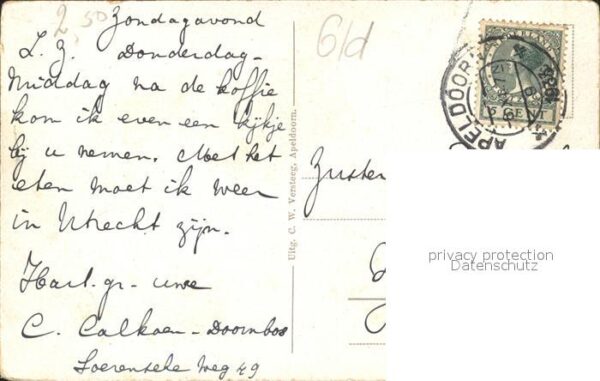 2,50
Zondagavond
L. Z. Donderdag-
middag na de koffie
kom ik even een kijkje
bij u nemen. Met het
eten moet ik weer
in Utrecht zijn.
Hart. gr. uwe
C. Calkoen-Doornbos
Loerenseke weg 49
6/d
Uitg. C. W. Versteeg, Apeldoorn.
NEDERLAND
5 CENT
APELDOORN
Zuster
privacy protection
Datenschutz